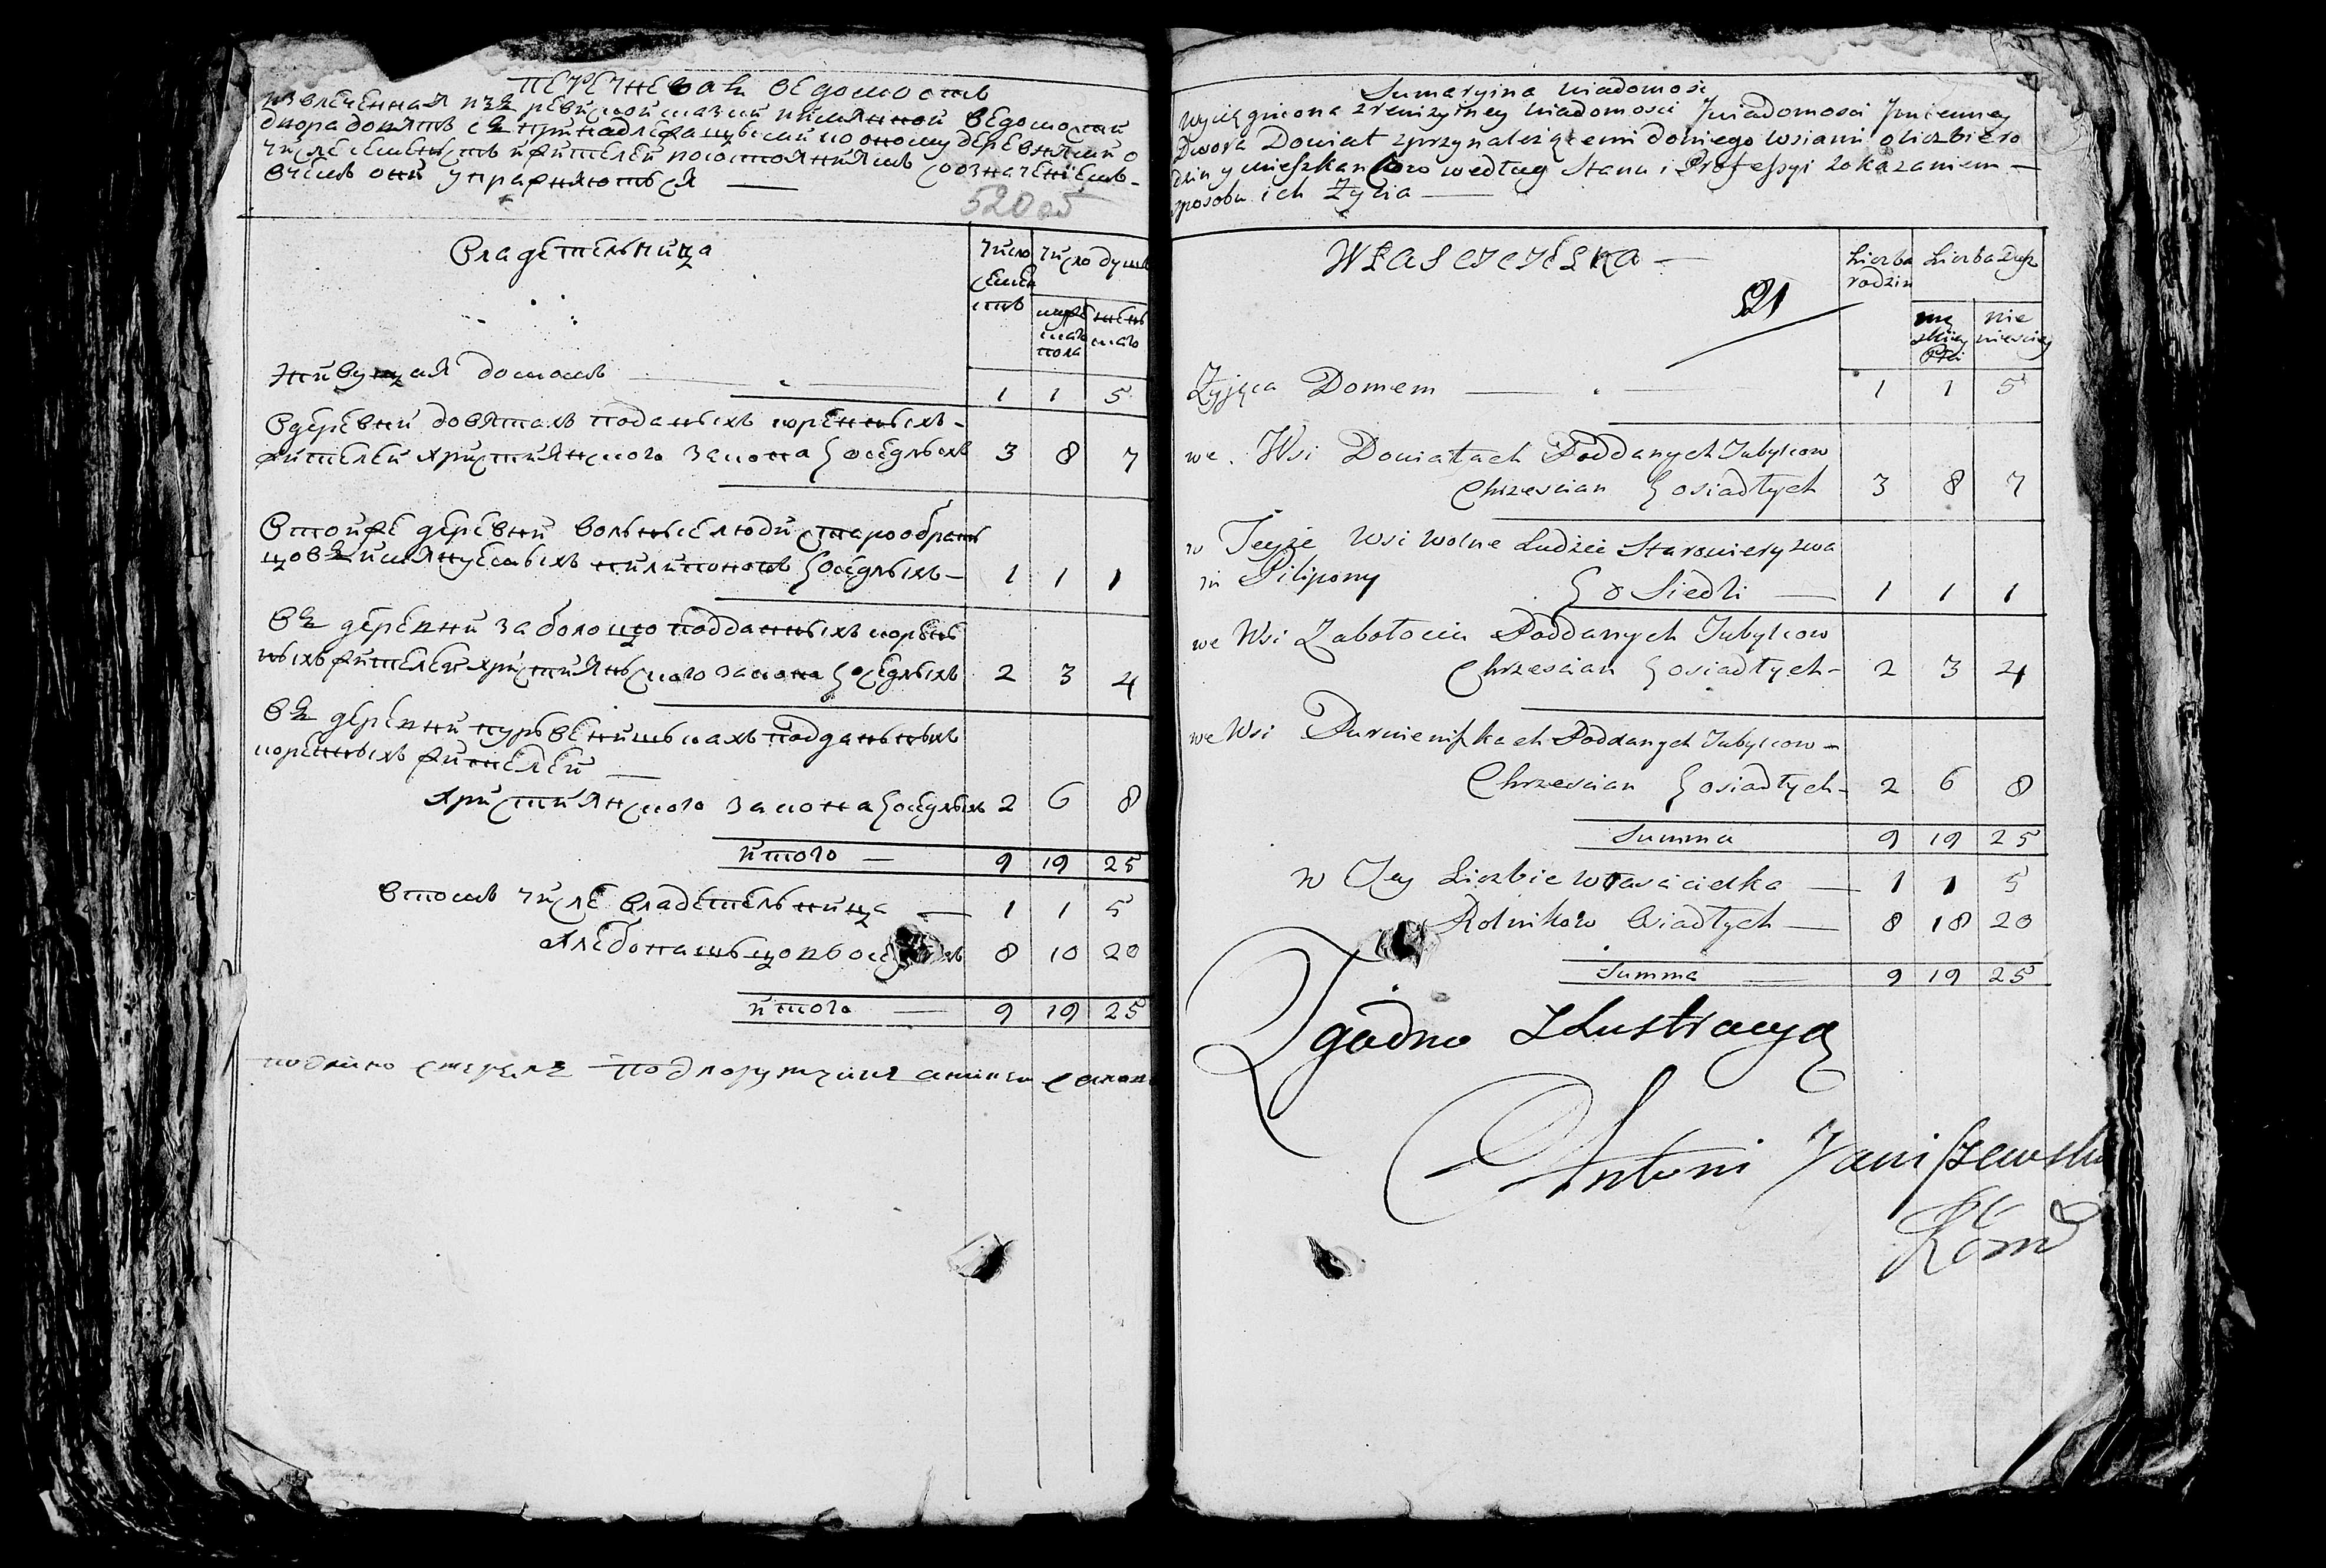 перечневая ведомость
извлеченная изъ ревизской сказки имянной ведомости
двора довятъ съ принадлежащыми по оному деревнями о
числе семьинствъ и жителей по состояниямъ со означениемъ
вчемъ они упражняются
520 об
Владетельница
число семеиствъ
число душъ
мужескаго пола
женьскаго
живущая домомъ — 1 1 5
Вдеревни довятахъ поданыхъ коренныхъ-
жителей християнского закона оседлыхъ 3 8 7
Втойже деревни вольные люди старообрать
цовъ имянуемыхъ пилипонов оседлыхъ- 1 1 1
Въ деревни заболоцю подданныхъ корень
ныхъ жителей християньского закона оседлыхъ 2 3 4
Въ деревни пурвенишьках подданьныхъ
коренныхъ жителей —
християнского закона оседлыхъ 2 6 8
итого — 9 19 25
втомъ числе владетельница — 1 1 5
хлебопашьцовъ 8 10 20
итого — 9 19 25
Sumaryina wiadomość
Wyciągniona z rewizyiney wiadomosci Jmienney
Dwora Dowiat z przynależącemi do niego wsiami o liczbie ro
dzin y mieszkańcow według Stanu i Professyi z okazaniem —
sposobu ich Życia —
WŁASCICIELKA —
21
Liczba rodzin
Liczba Dusz
męskiey Płci
niewiesciey
Żyjąca Domem — 1 1 5
we Wsi Dowiatach Poddanych Tubylcow
Chrzescian osiadłych 3 8 7
w Teyże Wsi wolne Ludzie Starowiery zwa
ni Pilipony
osiedli — 1 1 1
we Wsi Zabołociu Poddanych Tubylcow
Chrzescian osiadłych- 2 3 4
we Wsi Purwieniszkach Poddanych Tubylcow -
Chrzescian osiadłych- 2 6 8
Summa 9 19 25
w Tey Liczbie włascicielka — 1 1 5
Rolnikow Osiadłych — 8 18 20
Summa — 9 19 25
Zgodno z Lustracyą
Antoni Janiszewski